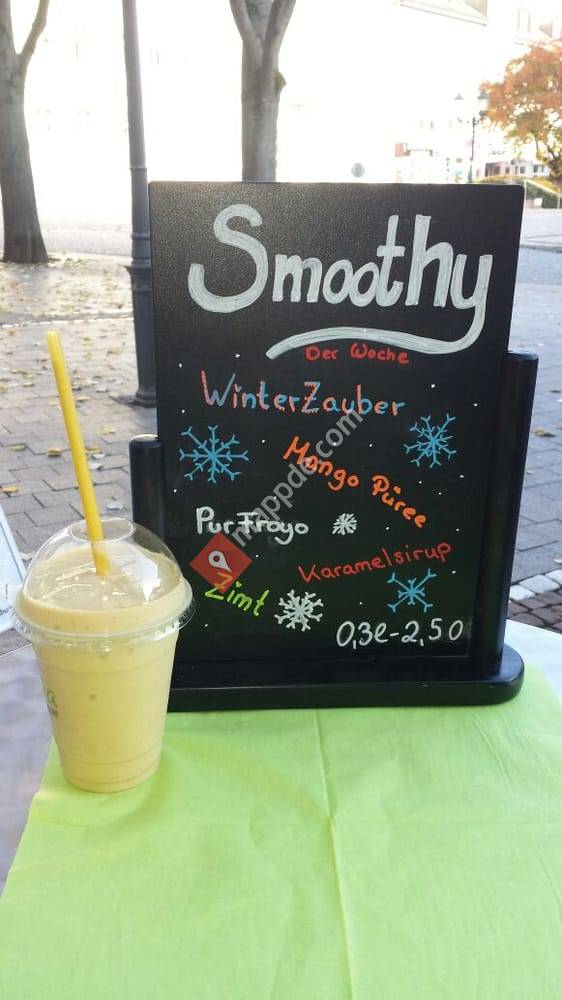 Smoothy
Der Woche
WinterZauber
Mango Püree
PurFroyo
Karamelsirup
Zimt
0,3l-2,50
mappde.com